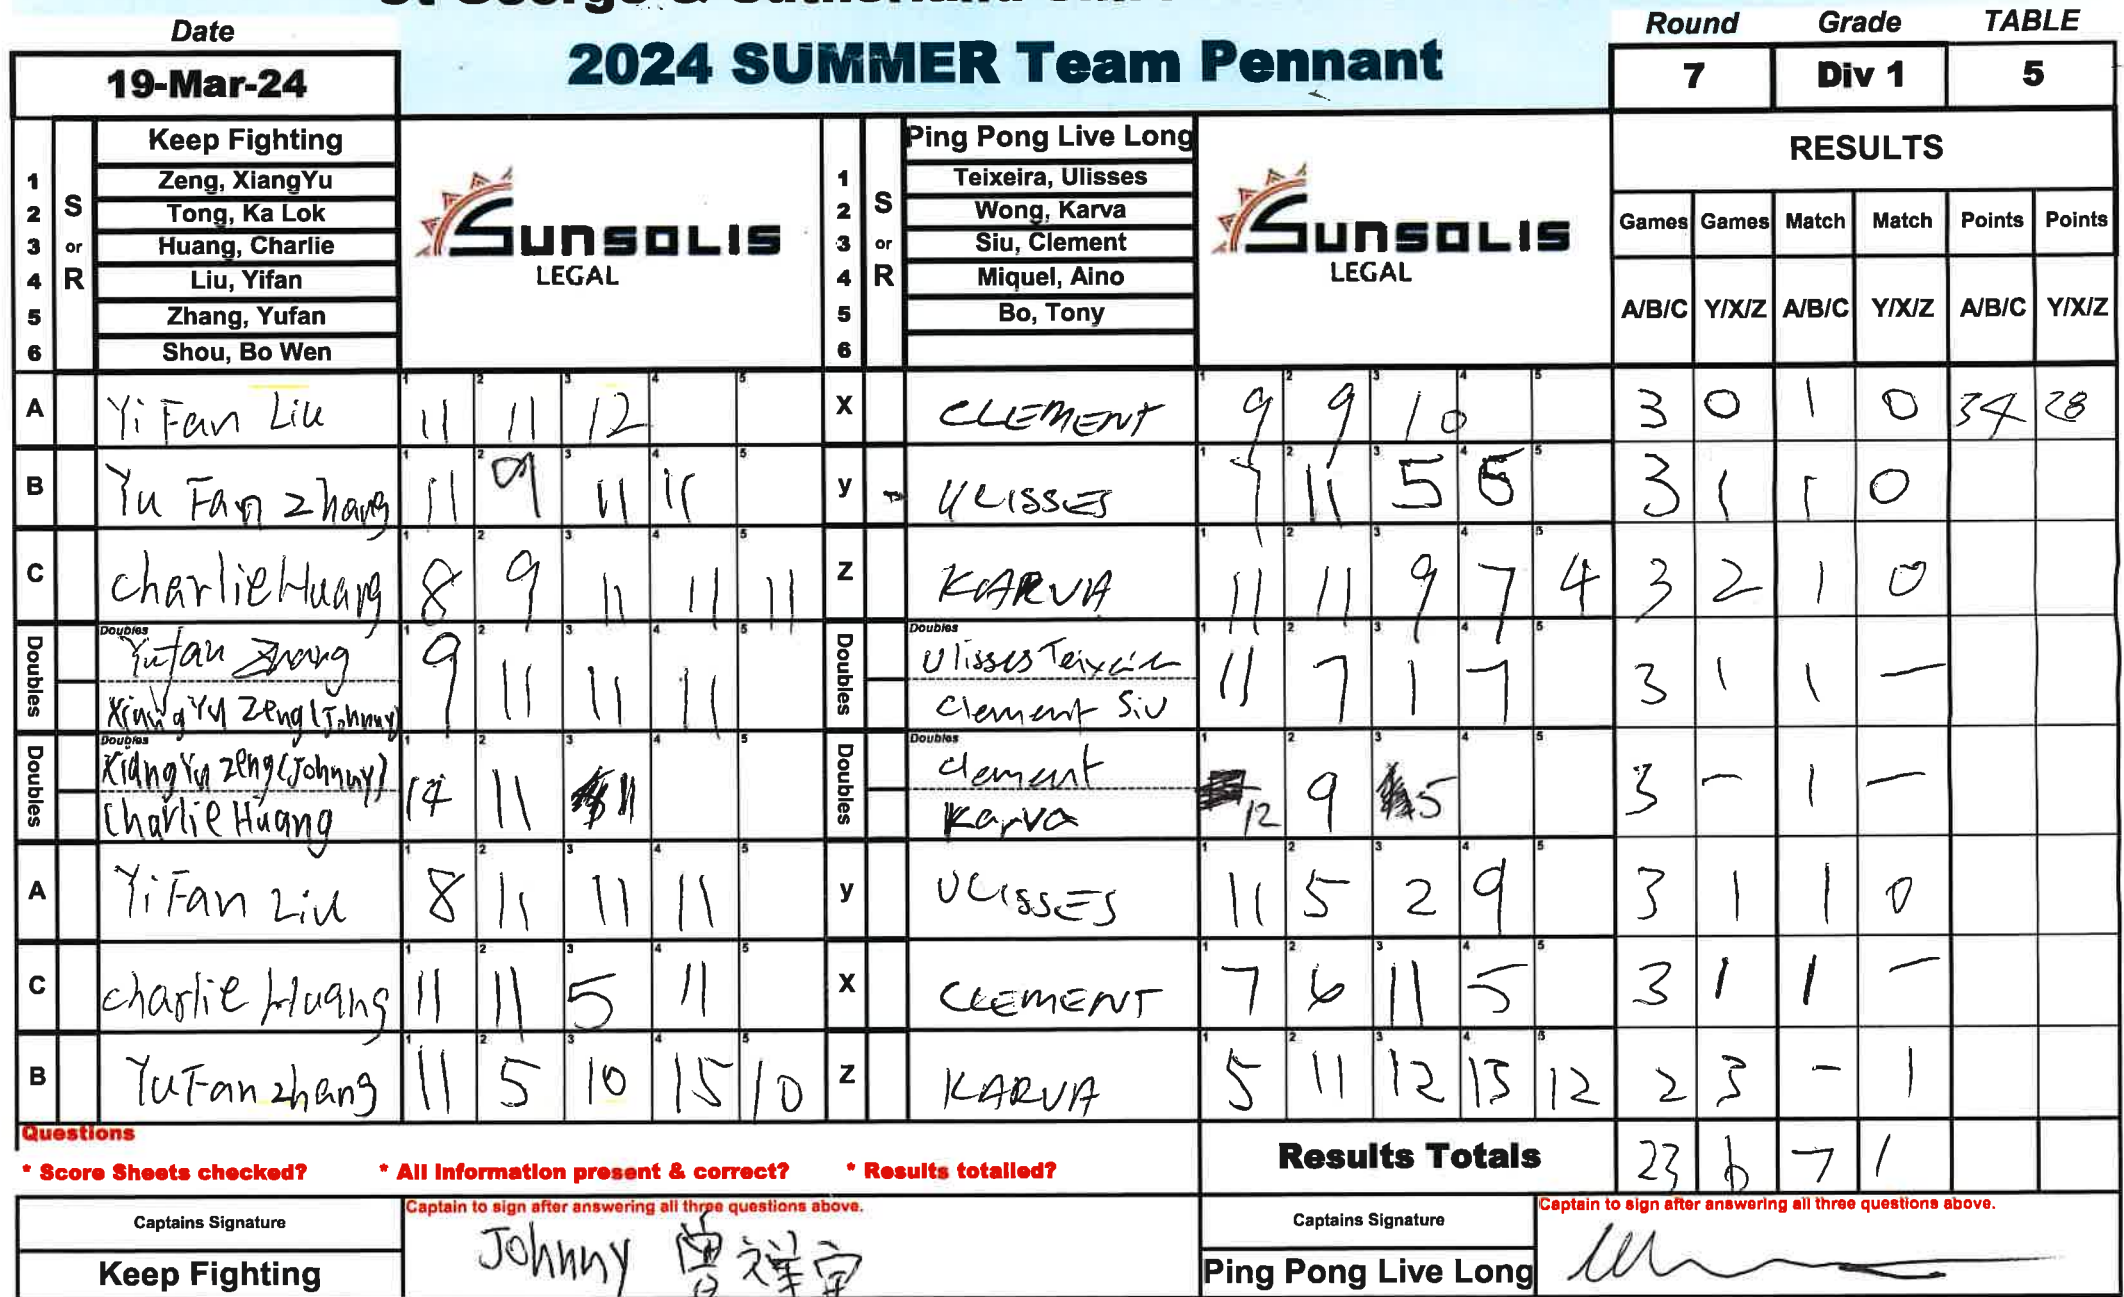 Date
19-Mar-24
2024 SUMMER Team Pennant
Round Grade TABLE
7 Div 1 5
Keep Fighting
1 Zeng, XiangYu
2 Tong, Ka Lok
3 Huang, Charlie
4 Liu, Yifan
5 Zhang, Yufan
6 Shou, Bo Wen
S or R
SUNSOLIS
LEGAL
Ping Pong Live Long
1 Teixeira, Ulisses
2 Wong, Karva
3 Siu, Clement
4 Miquel, Aino
5 Bo, Tony
6
S or R
SUNSOLIS
LEGAL
RESULTS
Games Games Match Match Points Points
A/B/C Y/X/Z A/B/C Y/X/Z A/B/C Y/X/Z
A Yi Fan Liu 11 11 12 X CLEMENT 9 9 10 3 0 1 0 34 28
B Yu Fan Zhang 11 9 11 11 y ULISSES 7 11 5 6 3 1 1 0
C Charlie Huang 8 9 11 11 11 Z KARVA 11 11 9 7 4 3 2 1 0
Doubles Doubles Yufan Zhang 9 11 11 11 Doubles Doubles Ulisses Teixeira 11 7 1 7 3 1 1 —
XiangYu Zeng (Johnny) Clement Siu
Doubles Doubles XiangYu Zeng (Johnny) 14 11 11 Doubles Doubles Clement 12 9 5 3 – 1 –
Charlie Huang Karva
A Yi Fan Liu 8 11 11 11 y ULISSES 11 5 2 9 3 1 1 0
C Charlie Huang 11 11 5 11 X CLEMENT 7 6 11 5 3 1 1 –
B YuFan Zhang 11 5 10 15 10 Z KARVA 5 11 12 13 12 2 3 – 1
Questions
* Score Sheets checked? * All Information present & correct? * Results totalled?
Results Totals 23 6 7 1
Captains Signature
Captain to sign after answering all three questions above.
Johnny
Keep Fighting
Captains Signature
Captain to sign after answering all three questions above.
Ping Pong Live Long